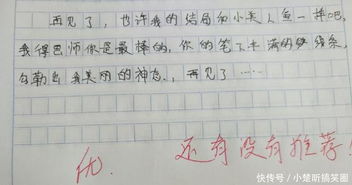 再见了，也许我的结局和小美人鱼一样吧，
我得巴师你是最棒的，你的笔下丰满的线条，
勾勒出我美丽的神态，再见了……
优.
还有没有推荐!
快传号/小楚昕搞笑圈